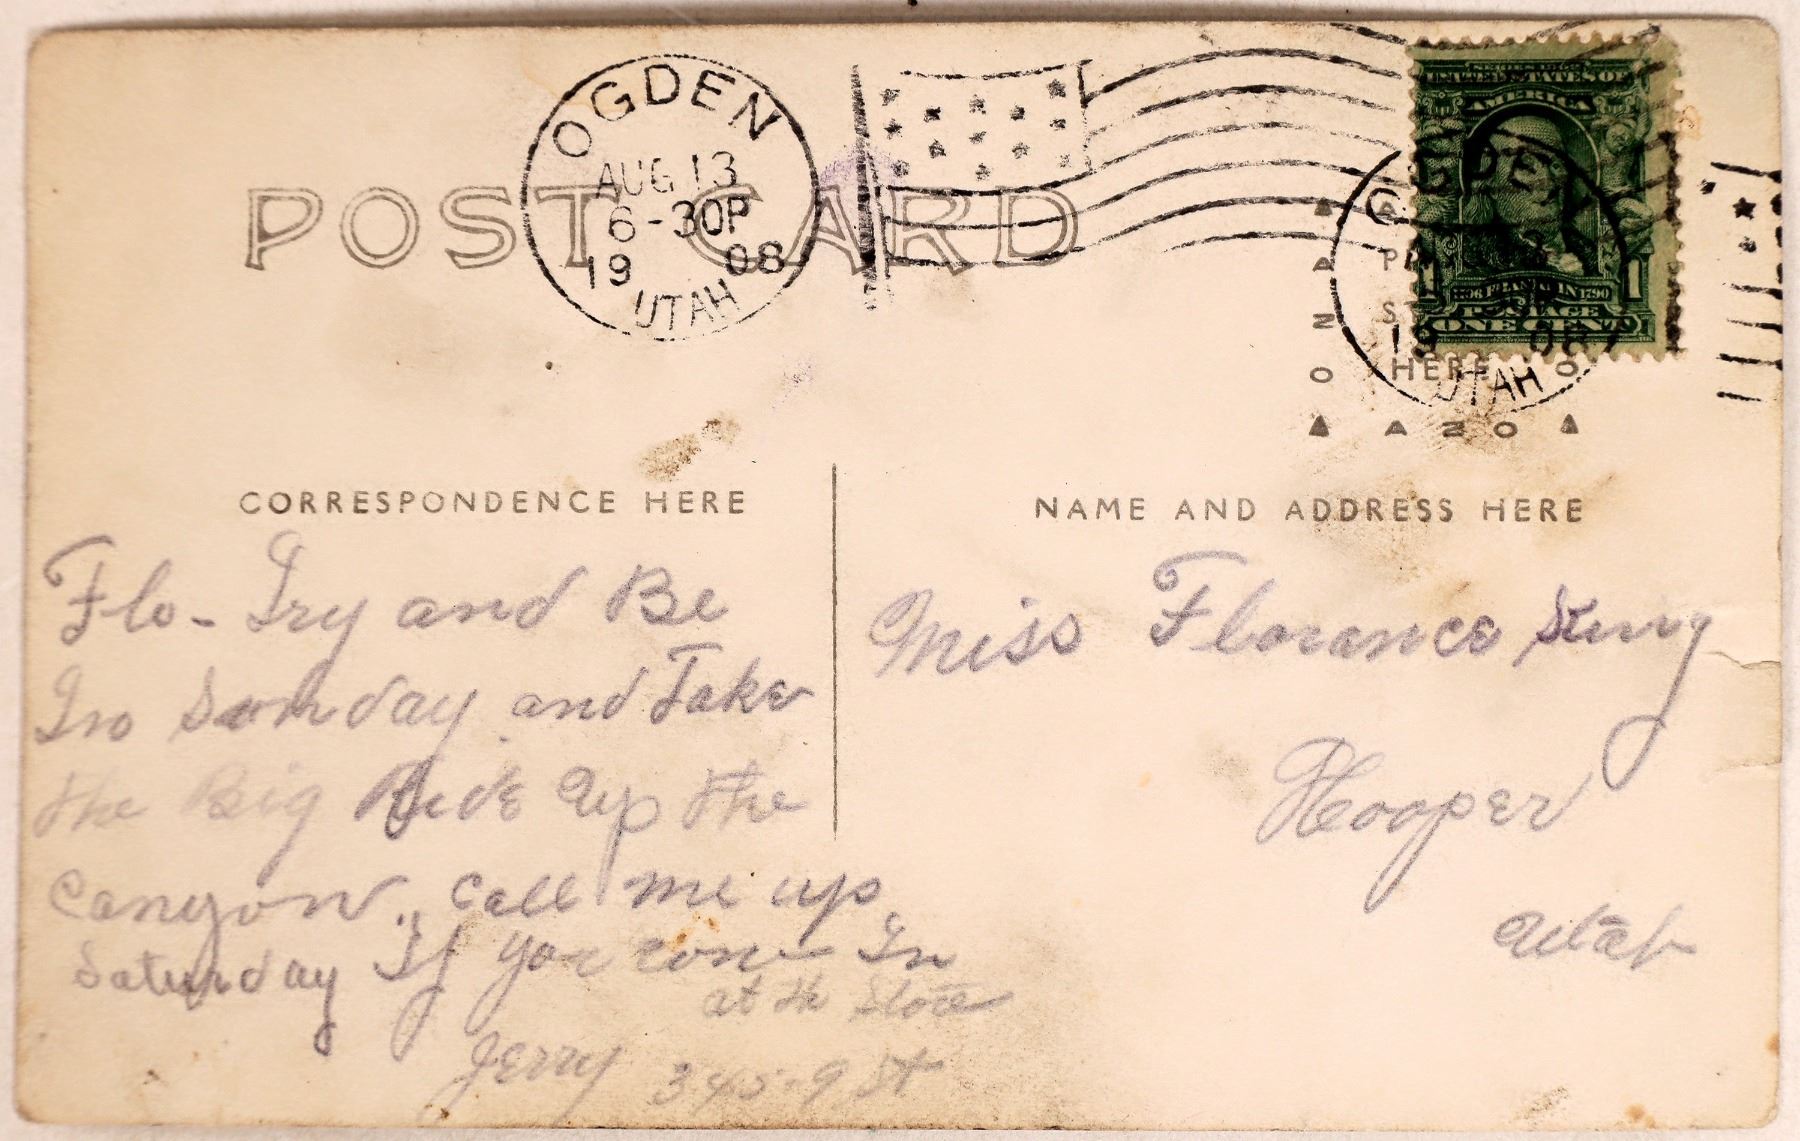 OGDEN
AUG 13
6-30P
1908
UTAH
POST CARD
UNITED STATES OF
AMERICA
1 FRANKLIN 1790 1
POSTAGE
ONE CENT
OGDEN
19 08
UTAH
HERE
AZO
AZO
CORRESPONDENCE HERE
NAME AND ADDRESS HERE
Flo - Try and Be
In Sunday and Take
the Big Ride Up the
Canyon. Call me up
Saturday If you come In
at the Store
Jerry 345-9 St
Miss Florance
Hooper
Utah